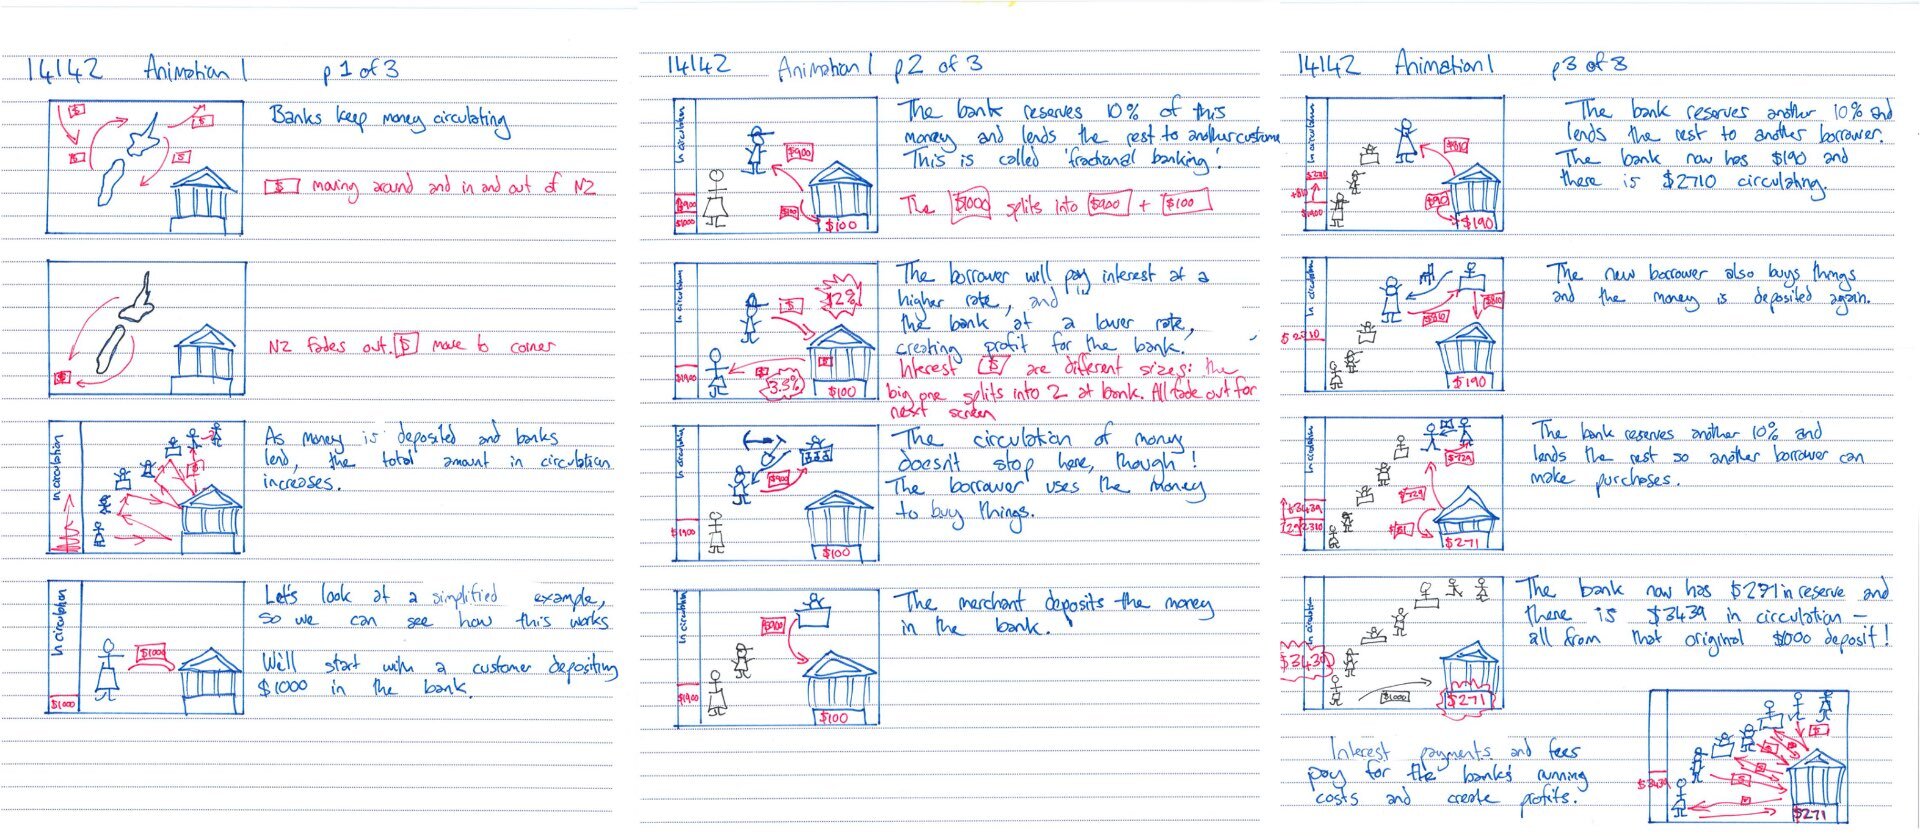 14142 Animation 1 p 1 of 3
$
$
$
$
Banks keep money circulating
$ moving around and in and out of NZ
$
NZ fades out. $ move to corner
In circulation
$
As money is deposited and banks
lend, the total amount in circulation
increases.
In circulation
$1000
$1000
Let's look at a simplified example,
so we can see how this works
We'll start with a customer depositing
$1000 in the bank.
14142 Animation 1 p2 of 3
In circulation
$900
$900
$1000
$100
$100
The bank reserves 10% of this
money and lends the rest to another customer
This is called 'fractional banking'.
The $1000 splits into $900 + $100
In circulation
$
12%
$
$
3.5%
$1900
$100
The borrower will pay interest at a
higher rate, and
the bank at a lower rate,
creating profit for the bank.
Interest $ are different sizes: the
big one splits into 2 at bank. All fade out for
next screen
In circulation
$900
$1900
$100
The circulation of money
doesn't stop here, though!
The borrower uses the money
to buy things.
In circulation
$900
$1900
$100
The merchant deposits the money
in the bank.
14142 Animation 1 p3 of 3
In circulation
$810
$1900
$90
$190
The bank reserves another 10% and
lends the rest to another borrower.
The bank now has $190 and
there is $2710 circulating.
In circulation
$810
$810
$190
The new borrower also buys things
and the money is deposited again.
In circulation
$729
$729
$81
$3439
$271
The bank reserves another 10% and
lends the rest so another borrower can
make purchases.
In circulation
$3439
$1000
$271
The bank now has $271 in reserve and
there is $3439 in circulation –
all from that original $1000 deposit!
Interest payments and fees
pay for the bank's running
costs and create profits.
$
$
$
$
$3439
$271